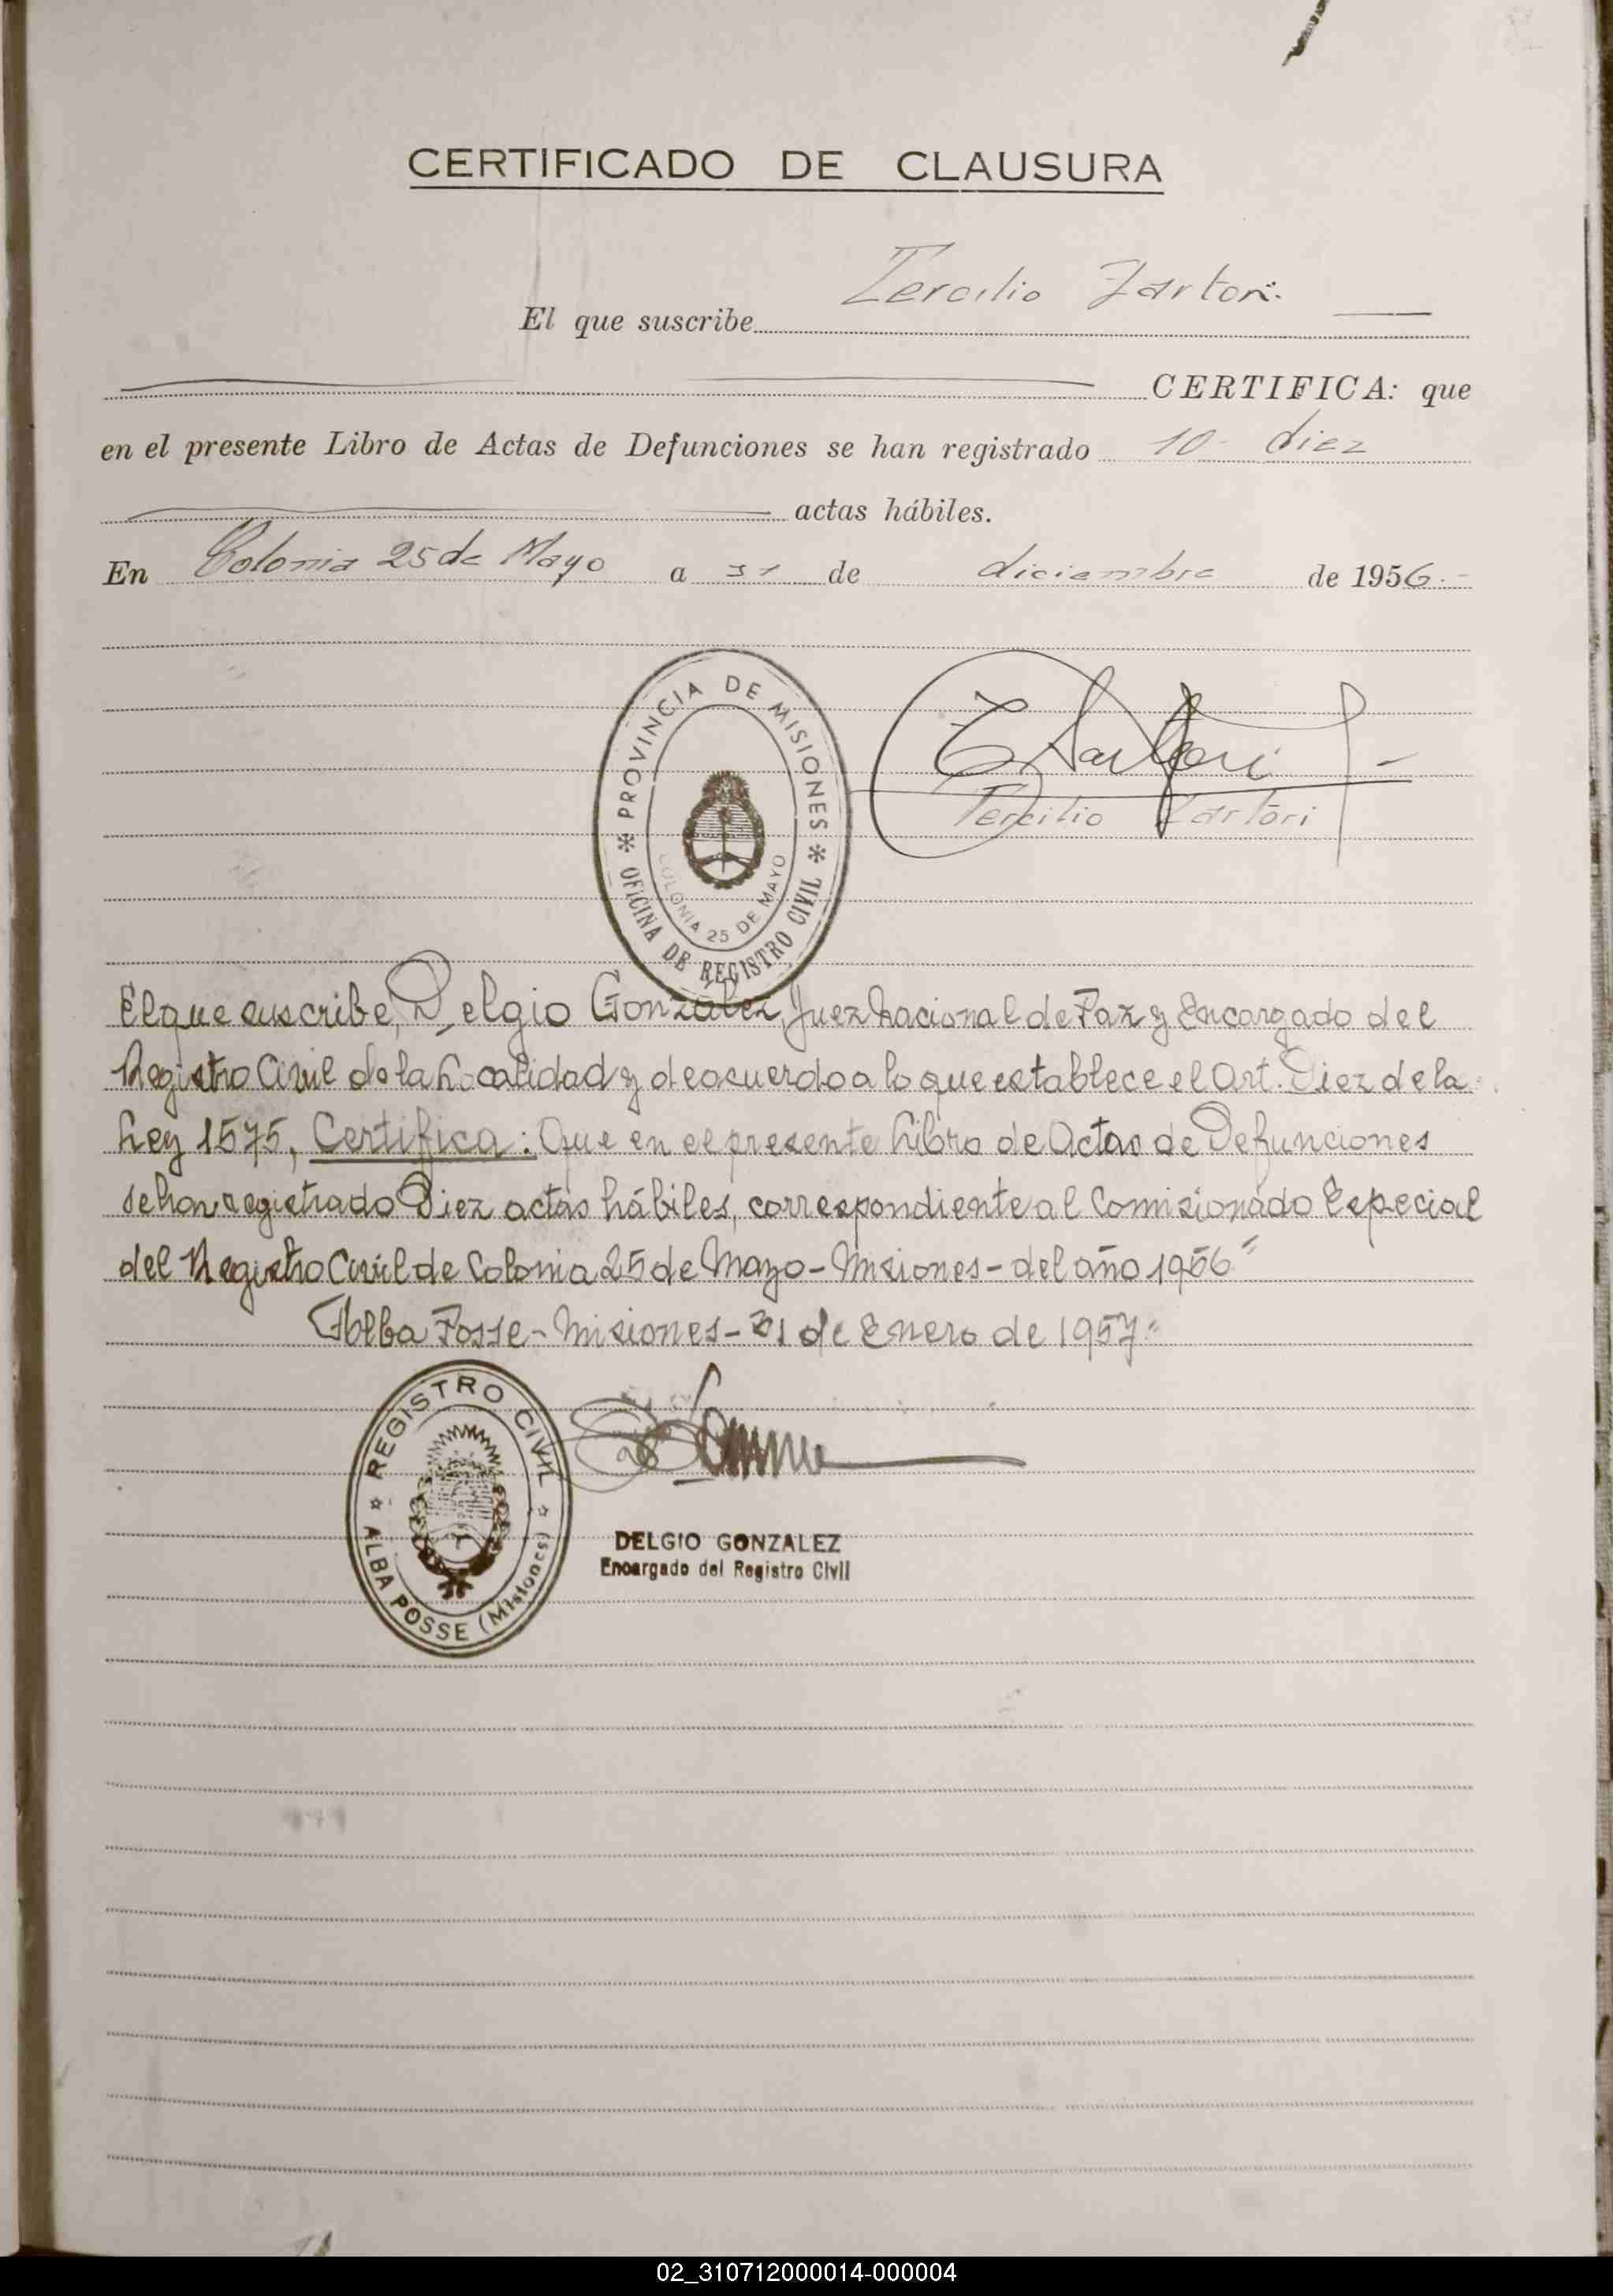 CERTIFICADO DE CLAUSURA
El que suscribe Tercilio Sartori.
CERTIFICA: que
en el presente Libro de Actas de Defunciones se han registrado 10 - diez
actas hábiles.
En Colonia 25 de Mayo a 31 de diciembre de 1956.-
PROVINCIA DE MISIONES
COLONIA 25 DE MAYO
OFICINA DE REGISTRO CIVIL
T Sartori
Tercilio Sartori
El que suscribe, Delgio Gonzalez, Juez Nacional de Paz y Encargado del
Registro Civil de la Localidad y de acuerdo a lo que establece el Art. Diez de la
Ley 1575, Certifica: Que en el presente Libro de Actas de Defunciones
se han registrado Diez actas hábiles, correspondiente al Comisionado Especial
del Registro Civil de Colonia 25 de Mayo - Misiones - del año 1956"
Alba Posse - Misiones - 31 de Enero de 1957.-
REGISTRO CIVIL
ALBA POSSE (Misiones)
DELGIO GONZALEZ
Encargado del Registro Civil
02_310712000014-000004